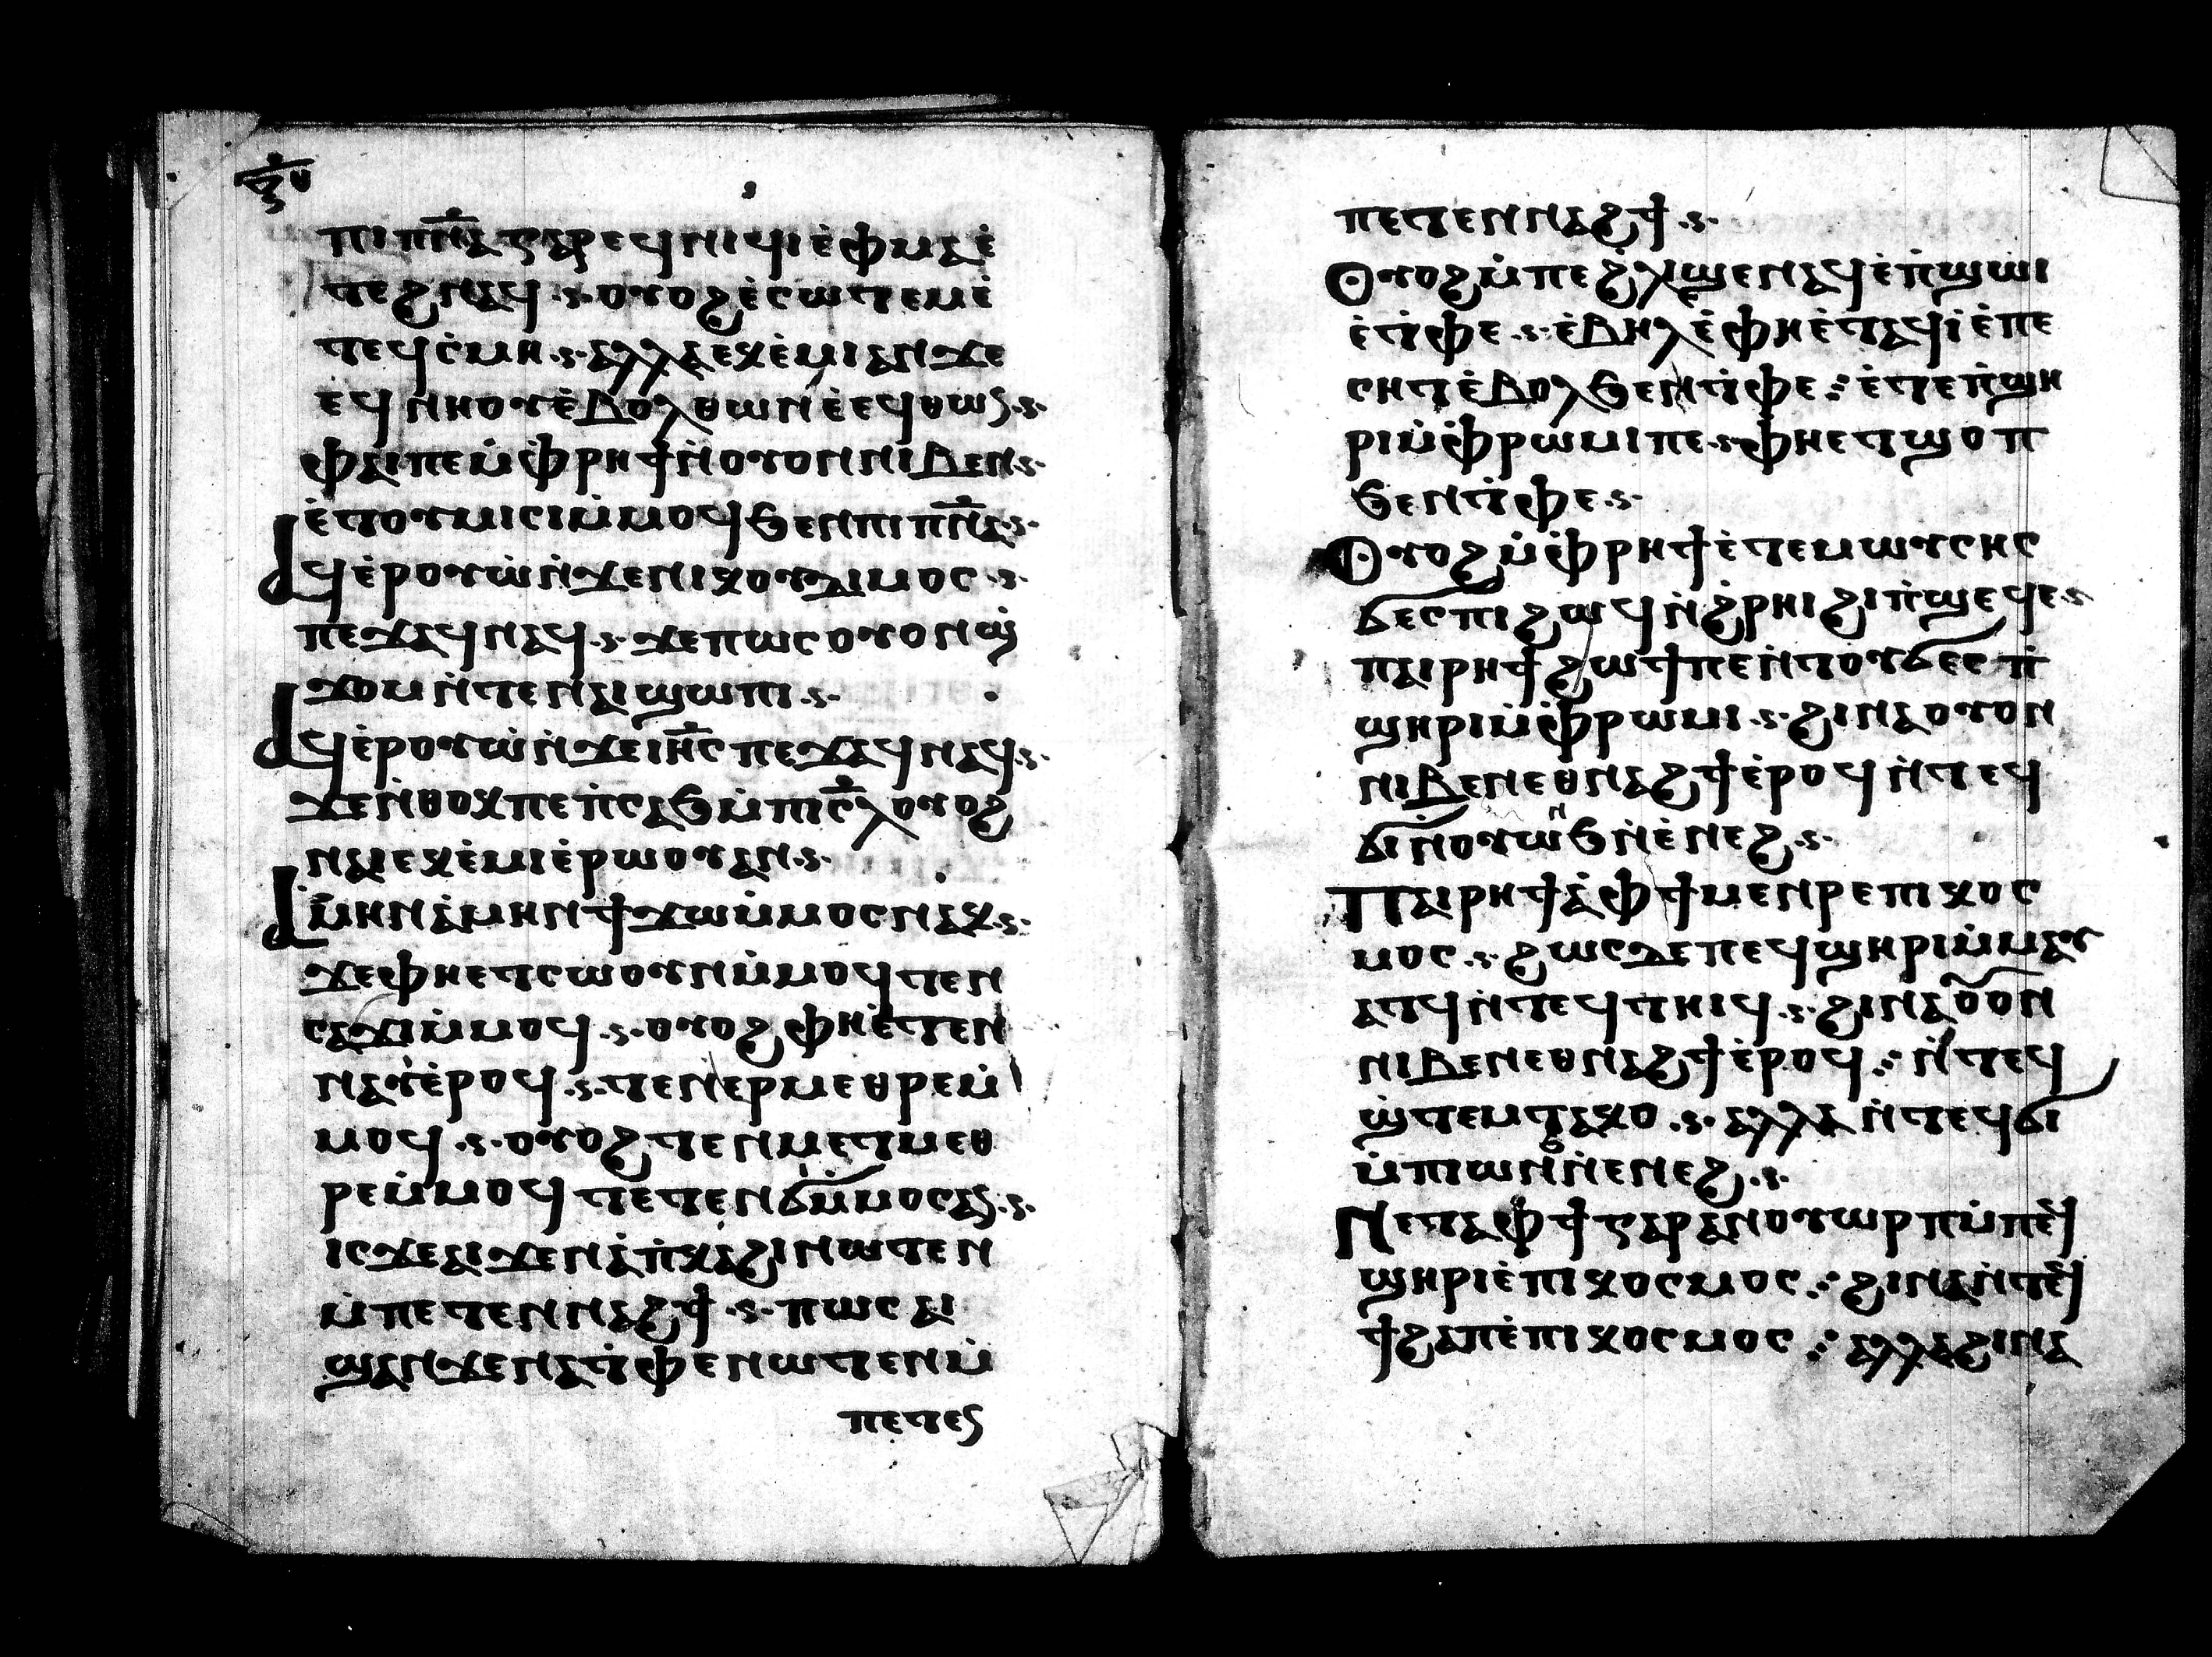 ⲡⲓⲡ̅ⲛ̅ⲁ̅ ⲅⲁⲣ ⲉϥⲛⲓϥⲓ ⲉ̀ⲫⲙⲁ ⲉ̀
ⲧⲉϩⲛⲁϥ ⲟⲩⲟϩ ⲉ̀ⲥⲱⲧⲉⲙ ⲉ̀
ⲧⲉϥⲥ̀ⲙⲏ ⲁⲗⲗⲁ ⲉⲭⲉ̀ⲙⲓ ⲁⲛ ϫⲉ
ⲉϥⲛⲏⲟⲩ ⲉ̀ⲃⲟⲗ ⲑⲱⲛ ⲉ̀ⲉϥⲑⲱⲛ
ⲫⲁⲓ ⲡⲉ ⲙ̀ⲫ̀ⲣⲏϯ ⲛ̀ⲟⲩⲟⲛ ⲛⲓⲃⲉⲛ
ⲉ̀ⲧⲟⲩⲙⲓⲥⲓ ⲙ̀ⲙⲟϥ ϧⲉⲛ ⲡⲓⲡ̅ⲛ̅ⲁ̅
ⲁϥⲉ̀ⲣⲟⲩⲱ̀ ⲛ̀ϫⲉ ⲛⲓⲕⲟⲩⲇⲓⲙⲟⲥ
ⲡⲉϫⲁϥ ⲛⲁϥ ϫⲉ ⲡⲱⲥ ⲟⲩⲟⲛ ϣ̀
ϫⲟⲙ ⲛ̀ⲧⲉ ⲛⲁⲓ ϣⲱⲡⲓ
ⲁϥⲉ̀ⲣⲟⲩⲱ̀ ⲛ̀ϫⲉ ⲓⲏ̅ⲥ ⲡⲉϫⲁϥ ⲛⲁϥ
ϫⲉ ⲛ̀ⲑⲟⲕ ⲡⲉ ⲡ̀ⲥⲁϧ ⲙ̀ⲡⲓⲥ̅ⲗ ⲟⲩⲟϩ
ⲛⲁⲓ ⲉⲕⲉ̀ⲙⲓ ⲉ̀ⲣⲱⲟⲩ ⲁⲛ
ⲁⲙ̀ⲏⲛ ⲁ̀ⲙⲏⲛ ϯϫⲱ ⲙ̀ⲙⲟⲥ ⲛⲁⲕ
ϫⲉ ⲫⲏⲉⲧⲥⲱⲟⲩⲛ ⲙ̀ⲙⲟϥ ⲧⲉⲛ
ⲥⲁϫⲓ ⲙ̀ⲙⲟϥ ⲟⲩⲟϩ ⲫⲏⲉ̀ⲧⲉⲛ
ⲛⲁⲩ ⲉ̀ⲣⲟϥ ⲧⲉⲛⲉⲣⲙⲉⲑⲣⲉ ⲙ̀
ⲙⲟϥ ⲟⲩⲟϩ ⲧⲉⲛⲙⲉⲧⲙⲉⲑ
ⲣⲉ ⲙ̀ⲙⲟϥ ⲧⲉⲧⲉⲛϭⲓ ⲙ̀ⲙⲟⲥ ⲁⲛ
ⲓⲥϫⲉ ⲁⲓϫⲉ ⲛⲁ̀ⲡ̀ⲕⲁϩⲓ ⲛⲱⲧⲉⲛ
ⲙ̀ⲡⲉⲧⲉⲛⲛⲁϩϯ ⲡⲱⲥ ⲁⲓ
ϣⲁⲛϫⲉ ⲛⲁⲧ̀ⲫⲉ ⲛⲱⲧⲉⲛ ⲙ̀
ⲡⲉⲧⲉⲛ
ⲡⲉⲧⲉⲛⲛⲁϩϯ
Ⲟⲩⲟϩ ⲙ̀ⲡⲉ ϩ̀ⲗⲓ ϣⲉⲛⲁϥ ⲉ̀ⲡ̀ϣⲱⲓ
ⲉ̀ⲧ̀ⲫⲉ ⲉ̀ⲃⲏⲗ ⲉ̀ⲫⲏⲉ̀ⲧⲁϥⲓ̀ ⲉ̀ⲡⲉ
ⲥⲏⲧ ⲉ̀ⲃⲟⲗ ϧⲉⲛ ⲧ̀ⲫⲉ ⲉ̀ⲧⲉ ⲡ̀ϣⲏ
ⲣⲓ ⲙ̀ⲫ̀ⲣⲱⲙⲓ ⲡⲉ ⲫⲏⲉⲧϣⲟⲡ
ϧⲉⲛ ⲧ̀ⲫⲉ
Ⲟⲩⲟϩ ⲙ̀ⲫ̀ⲣⲏϯ ⲉ̀ⲧⲉ ⲙⲱⲩⲥⲏⲥ
ϭⲉⲥ ⲡⲓϩⲱϥ ⲛ̀ϩ̀ⲣⲏⲓ ϩⲓ ⲡ̀ϣⲉϥⲉ
ⲡⲁⲓⲣⲏϯ ϩⲱϯ ⲡⲉ ⲛ̀ⲧⲟⲩϭⲉⲥ ⲡ̀
ϣⲏⲣⲓ ⲙ̀ⲫ̀ⲣⲱⲙⲓ ϩⲓⲛⲁ ⲟⲩⲟⲛ
ⲛⲓⲃⲉⲛ ⲉⲑⲛⲁϩϯ ⲉ̀ⲣⲟϥ ⲛ̀ⲧⲉϥ
ϭⲓ ⲛ̀ⲟⲩⲱⲛϧ ⲛ̀ⲉ̀ⲛⲉϩ
Ⲡⲁⲓⲣⲏϯ ⲁ̀ⲫϯ ⲙⲉⲛⲣⲉ ⲡⲓⲕⲟⲥ
ⲙⲟⲥ ϩⲱⲥⲇⲉ ⲡⲉϥϣⲏⲣⲓ ⲙ̀ⲙⲁⲩ
ⲁⲧϥ ⲛ̀ⲧⲉϥⲧⲏⲓϥ ϩⲓⲛⲁ ⲟ̅ⲟⲛ
ⲛⲓⲃⲉⲛ ⲉⲑⲛⲁϩϯ ⲉ̀ⲣⲟϥ ⲛ̀ⲧⲉϥ
ϣ̀ⲧⲉⲙⲧⲁⲕⲟ ⲁⲗⲗⲁ ⲛ̀ⲧⲉϥϭⲓ
ⲙ̀ⲡⲓⲱⲛϧ ⲛ̀ⲉⲛⲉϩ
Ⲛⲉⲧⲁ ⲫϯ ⲅⲁⲣ ⲁⲛ ⲟⲩⲱⲣⲡ ⲙ̀ⲡⲉϥ
ϣⲏⲣⲓ ⲉ̀ⲡⲓⲕⲟⲥⲙⲟⲥ ϩⲓⲛⲁ ⲛ̀ⲧⲉϥ
ϯϩⲁⲡ ⲉ̀ⲡⲓⲕⲟⲥⲙⲟⲥ ⲁⲗⲗⲁ ϩⲓⲛⲁ